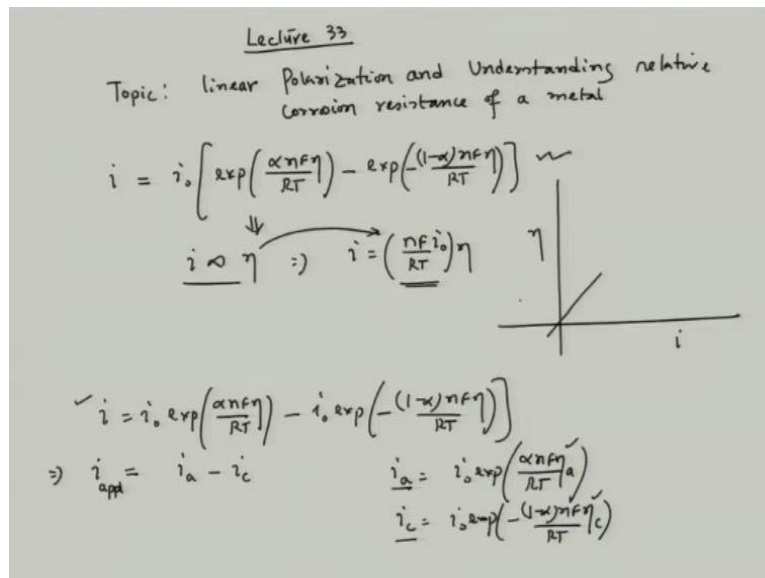 Lecture 33
Topic: linear Polarization and Understanding relative
corrosion resistance of a metal
i = i₀[exp(αnFη/RT) − exp(−(1−α)nFη/RT)]
i ∝ η ⇒ i = (nF/RT i₀)η
η
i
✓ i = i₀ exp(αnFη/RT) − i₀ exp(−(1−α)nFη/RT)]
⇒ i_app = i_a − i_c
i_a = i₀ exp(αnFη_a/RT)
i_c = i₀ exp(−(1−α)nFη_c/RT)